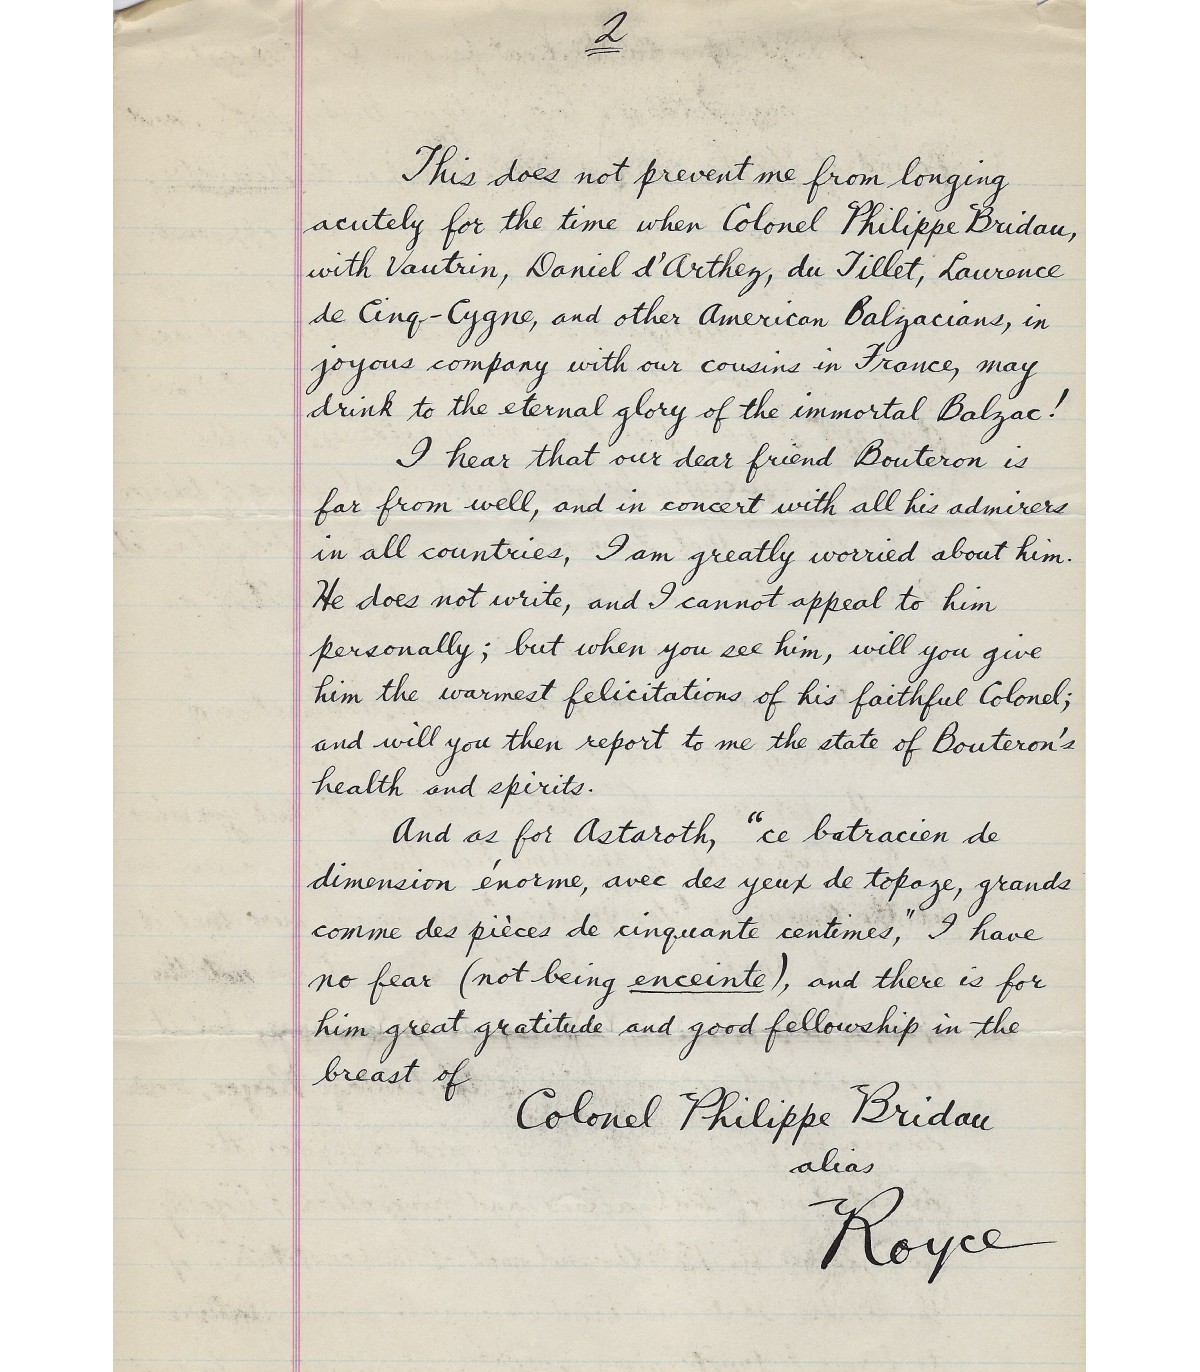 2
This does not prevent me from longing
acutely for the time when Colonel Philippe Bridau,
with Vautrin, Daniel d'Arthez, du Tillet, Laurence
de Cinq-Cygne, and other American Balzacians, in
joyous company with our cousins in France, may
drink to the eternal glory of the immortal Balzac!
I hear that our dear friend Bouteron is
far from well, and in concert with all his admirers
in all countries, I am greatly worried about him.
He does not write, and I cannot appeal to him
personally; but when you see him, will you give
him the warmest felicitations of his faithful Colonel;
and will you then report to me the state of Bouteron's
health and spirits.
And as for Astaroth, "ce batracien de
dimension énorme, avec des yeux de topaze, grands
comme des pièces de cinquante centimes," I have
no fear (not being enceinte), and there is for
him great gratitude and good fellowship in the
breast of
Colonel Philippe Bridau
alias
Royce